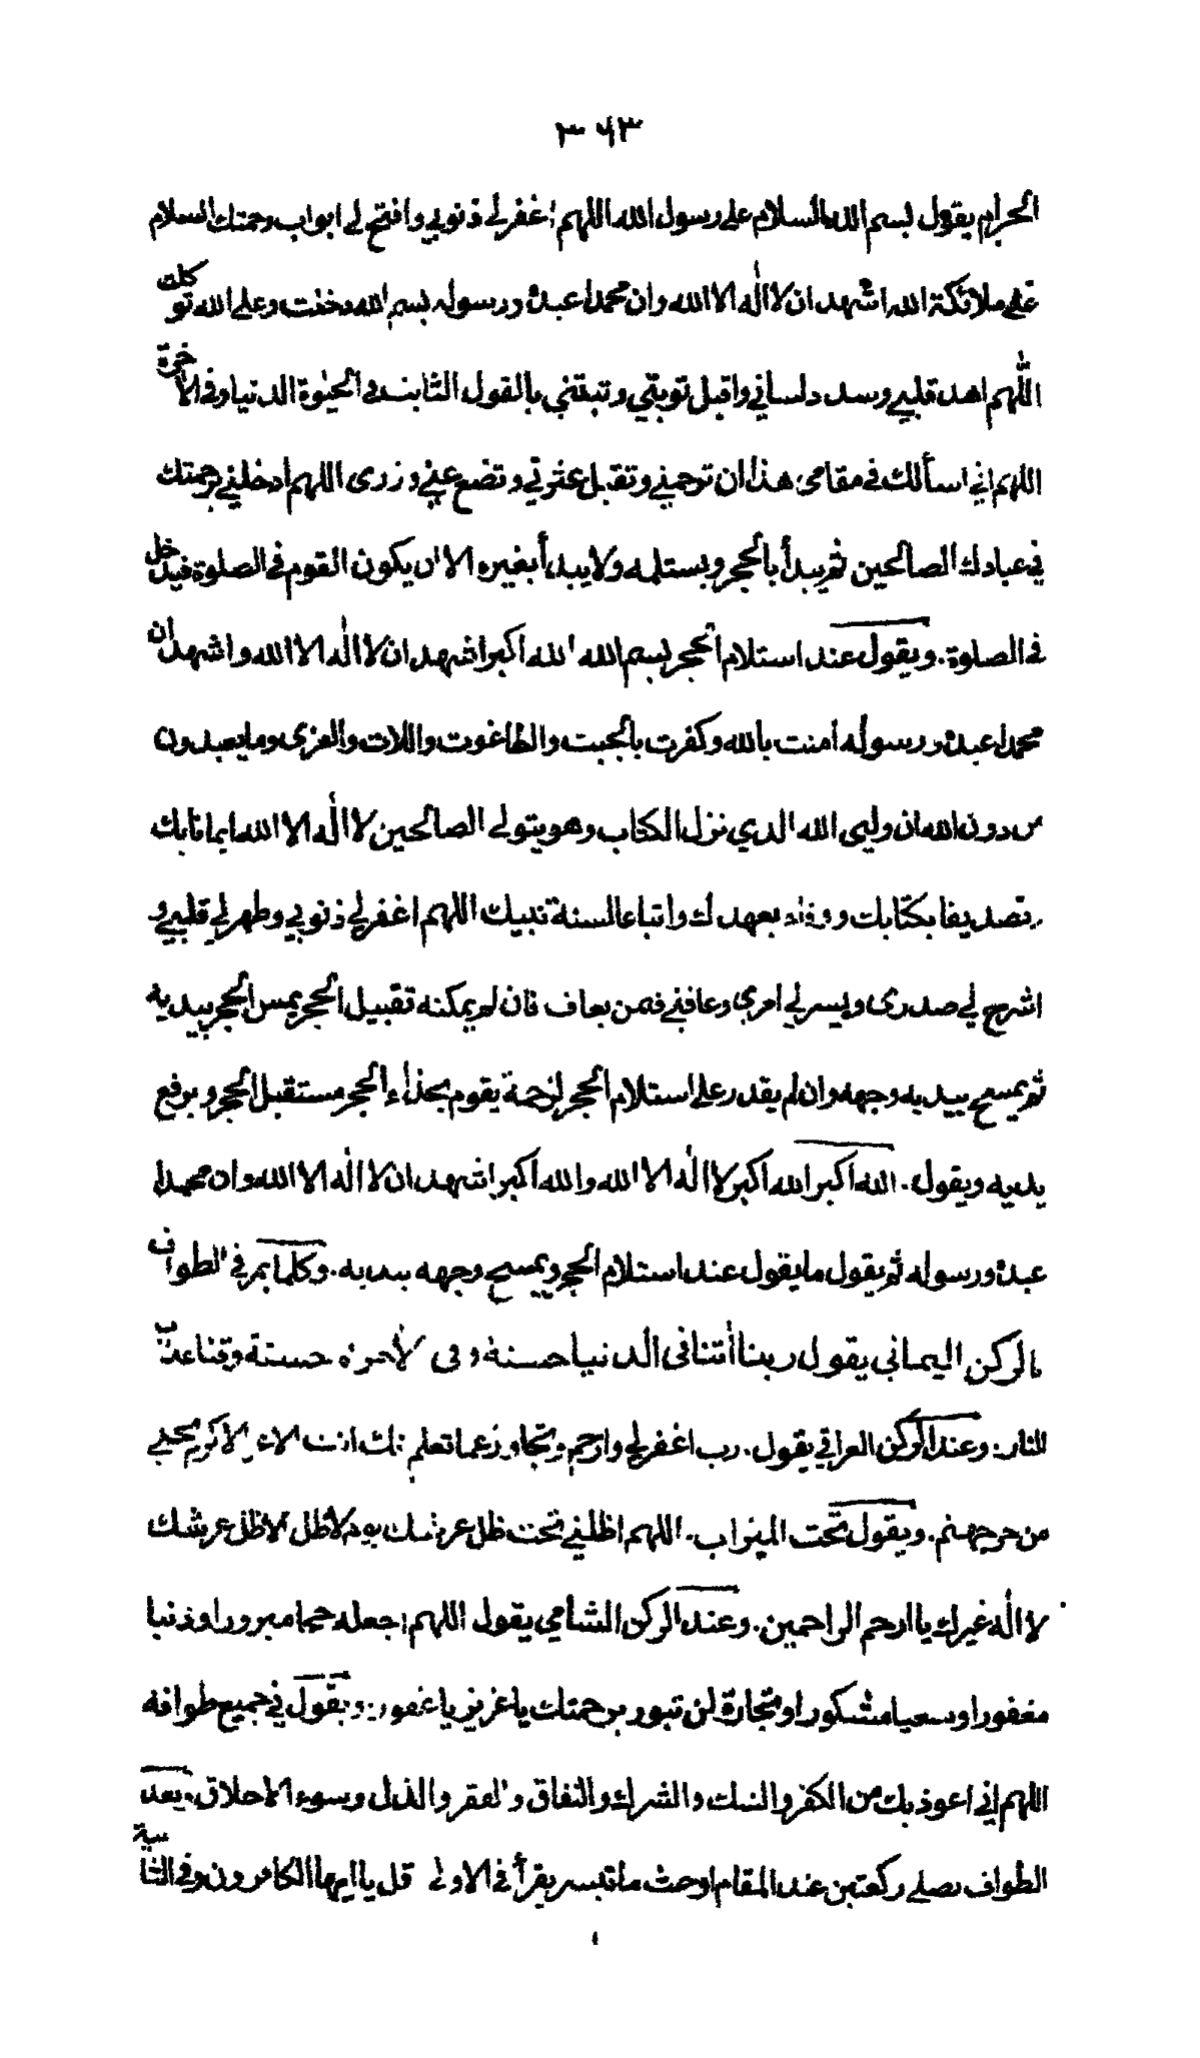 ٣٦٣
الحرام يقول بسم الله والسلام على رسول الله اللهم اغفر لي ذنوبي وافتح لي ابواب رحمتك السلام
على ملائكة الله اشهد ان لا اله الا الله وان محمدا عبده ورسوله بسم الله دخلت وعلى الله توكلت
اللهم اهد قلبي وسدد لساني واقبل توبتي وثبتني بالقول الثابت في الحيوة الدنيا وفي الاخرة
اللهم اني اسألك في مقامي هذا ان ترحمني وتقبل عثرتي وتضع عني وزرى اللهم ادخلني برحمتك
في عبادك الصالحين ثم يبدأ بالحجر ويستلمه ولا يبدأ بغيره الا ان يكون القوم في الصلوة فيدخل
في الصلوة. ويقول عند استلام الحجر بسم الله الله اكبر اشهد ان لا اله الا الله واشهد ان
محمدا عبده ورسوله امنت بالله وكفرت بالجبت والطاغوت واللات والعزى وما يعبدون
من دون الله ان وليي الله الذي نزل الكتاب وهو يتولى الصالحين لا اله الا الله ايمانا بك
وتصديقا بكتابك ووفاء بعهدك واتباعا لسنة نبيك اللهم اغفر لي ذنوبي وطهر لي قلبي و
اشرح لي صدرى ويسر لي امرى وعافني فمن يعاف فان لم يمكنه تقبيل الحجر يمس الحجر بيديه
ثم يمسح بيديه وجهه وان لم يقدر على استلام الحجر لزحمة يقوم بحذاء الحجر مستقبل الحجر ويرفع
يديه ويقول. الله اكبر الله اكبر لا اله الا الله والله اكبر اشهد ان لا اله الا الله وان محمدا
عبده ورسوله ثم يقول ما يقول عند استلام الحجر ويمسح وجهه بيديه. وكلما يمر في الطواف
بالركن اليماني يقول ربنا أتنا فى الدنيا حسنة وفى الأخرة حسنة وقنا عذاب
النار. وعند الركن العراقي يقول. رب اغفر لي وارحم وتجاوز عما تعلم انك انت الاعز الاكرم نجني
من حر جهنم. ويقول تحت الميزاب. اللهم اظلني تحت ظل عرشك يوم لا ظل الا ظل عرشك
لا اله غيرك يا ارحم الراحمين. وعند الركن الشامي يقول اللهم اجعله حجا مبرورا وذنبا
مغفورا وسعيا مشكورا وتجارة لن تبور برحمتك يا عزيز يا غفور. ويقول في جميع طوافه
اللهم اني اعوذ بك من الكفر والشك والشرك والنفاق والفقر والذل وسوء الاخلاق. بعد
الطواف يصلي ركعتين عند المقام او حيث ما تيسر يقرأ في الاولى قل يا ايها الكافرون وفي الثانية